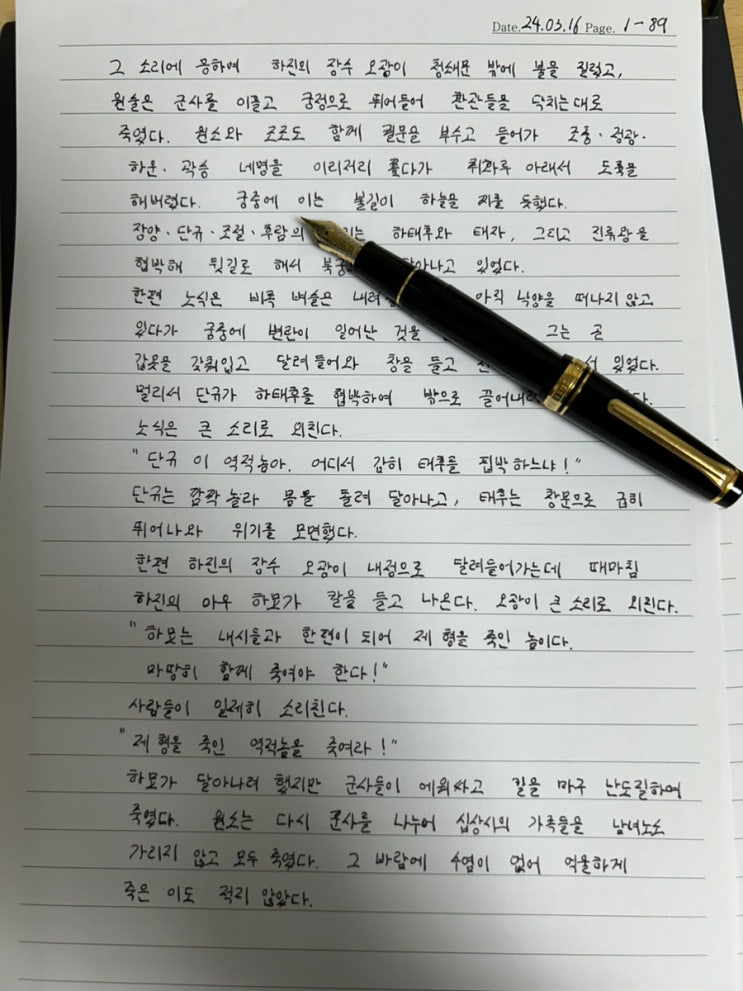 Date. 24.03.16 Page. 1-89
그 소리에 응하여 하진의 장수 오광이 청쇄문 밖에 불을 질렀고,
원술은 군사를 이끌고 궁정으로 뛰어들어 환관들을 닥치는대로
죽였다. 원소와 조조도 함께 궐문을 부수고 들어가 조충·정광·
하운·곽승 네명을 이리저리 쫓다가 취화루 아래서 도륙을
해버렸다. 궁중에 이는 불길이 하늘을 찌를 듯했다.
장양·단규·조절·후람의 하태후와 태자, 그리고 진류왕을
협박해 뒷길로 해서 달아나고 있었다.
한편 노식은 비록 벼슬은 아직 낙양을 떠나지 않고
있다가 궁중에 변란이 일어난 것을 그는 곧
갑옷을 갖춰입고 달려들어와 창을 들고 서 있었다.
멀리서 단규가 하태후를 협박하여 밖으로
노식은 큰 소리로 외친다.
"단규 이 역적놈아. 어디서 감히 태후를 핍박하느냐!"
단규는 깜짝 놀라 몸을 돌려 달아나고, 태후는 창문으로 급히
뛰어나와 위기를 모면했다.
한편 하진의 장수 오광이 내정으로 달려들어가는데 때마침
하진의 아우 하묘가 칼을 들고 나온다. 오광이 큰 소리로 외친다.
"하묘는 내시들과 한편이 되어 제 형을 죽인 놈이다.
마땅히 함께 죽여야 한다!"
사람들이 일제히 소리친다.
"제 형을 죽인 역적놈을 죽여라!"
하묘가 달아나려 했지만 군사들이 에워싸고 칼을 마구 난도질하여
죽였다. 원소는 다시 군사를 나누어 십상시의 가족들을 남녀노소
가리지 않고 모두 죽였다. 그 바람에 수염이 없어 억울하게
죽은 이도 적지 않았다.